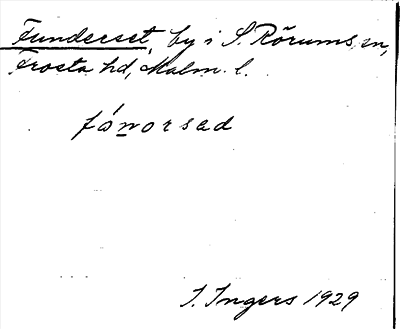 Funderset, by i S. Rörums sn,
Frosta hd, Malm. l.
fánorsad
I. Ingers 1929